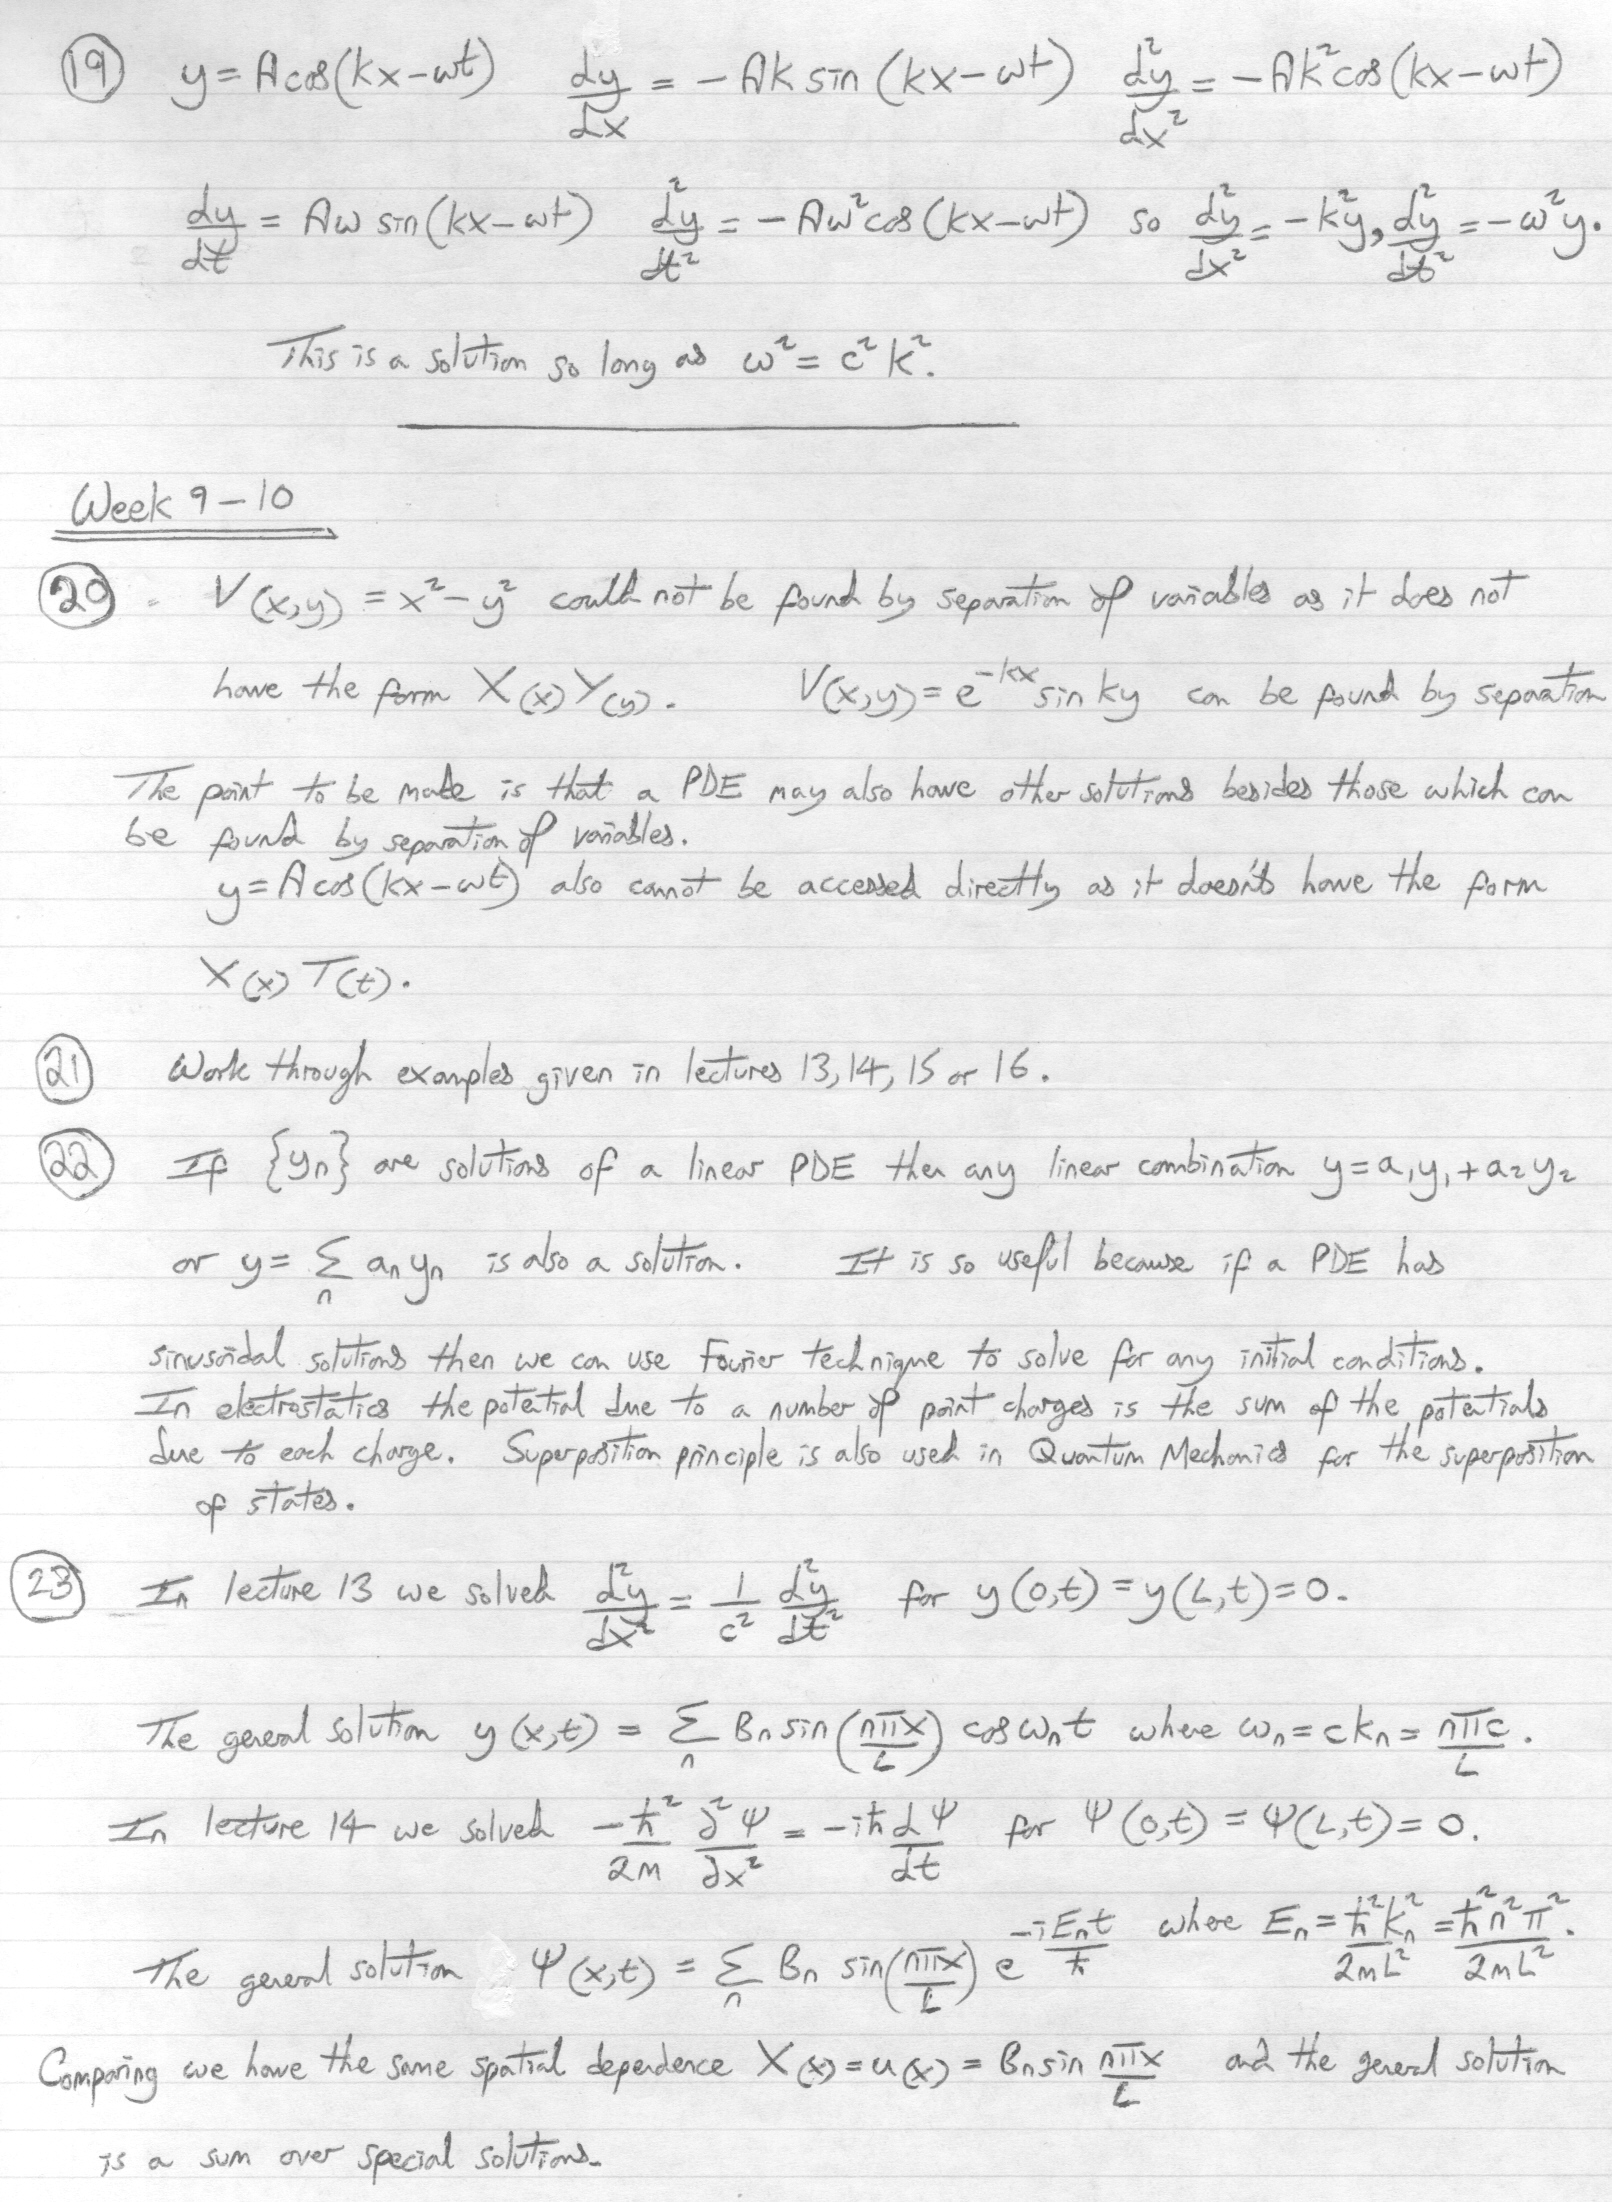 19 y = A cos(kx-ωt) dy/dx = -Ak sin(kx-ωt) d²y/dx² = -Ak² cos(kx-ωt)
dy/dt = Aω sin(kx-ωt) d²y/dt² = -Aω² cos(kx-ωt) so d²y/dx² = -k²y, d²y/dt² = -ω²y.
This is a solution so long as ω² = c² k².
Week 9-10
20 V(x,y) = x²-y² could not be found by separation of variables as it does not
have the form X(x)Y(y). V(x,y) = e^{-kx} sin ky can be found by separation
The point to be made is that a PDE may also have other solutions besides those which can
be found by separation of variables.
y = A cos(kx-ωt) also cannot be accessed directly as it doesn't have the form
X(x)T(t).
21 Work through examples given in lectures 13, 14, 15 or 16.
22 If {yn} are solutions of a linear PDE then any linear combination y = a₁y₁ + a₂y₂
or y = Σ_n an yn is also a solution. It is so useful because if a PDE has
sinusoidal solutions then we can use Fourier technique to solve for any initial conditions.
In electrostatics the potential due to a number of point charges is the sum of the potentials
due to each charge. Superposition principle is also used in Quantum Mechanics for the superposition
of states.
23 In lecture 13 we solved d²y/dx² = 1/c² d²y/dt² for y(0,t) = y(L,t) = 0.
The general solution y(x,t) = Σ_n Bn sin(nπx/L) cos ωnt where ωn = ckn = nπc/L.
In lecture 14 we solved -ħ²/2m ∂²Ψ/∂x² = -iħ dΨ/dt for Ψ(0,t) = Ψ(L,t) = 0.
The general solution Ψ(x,t) = Σ_n Bn sin(nπx/L) e^{-iEnt/ħ} where En = ħ²kn²/2mL² = ħ²n²π²/2mL².
Comparing we have the same spatial dependence X(x) = u(x) = Bn sin nπx/L and the general solution
is a sum over special solutions.